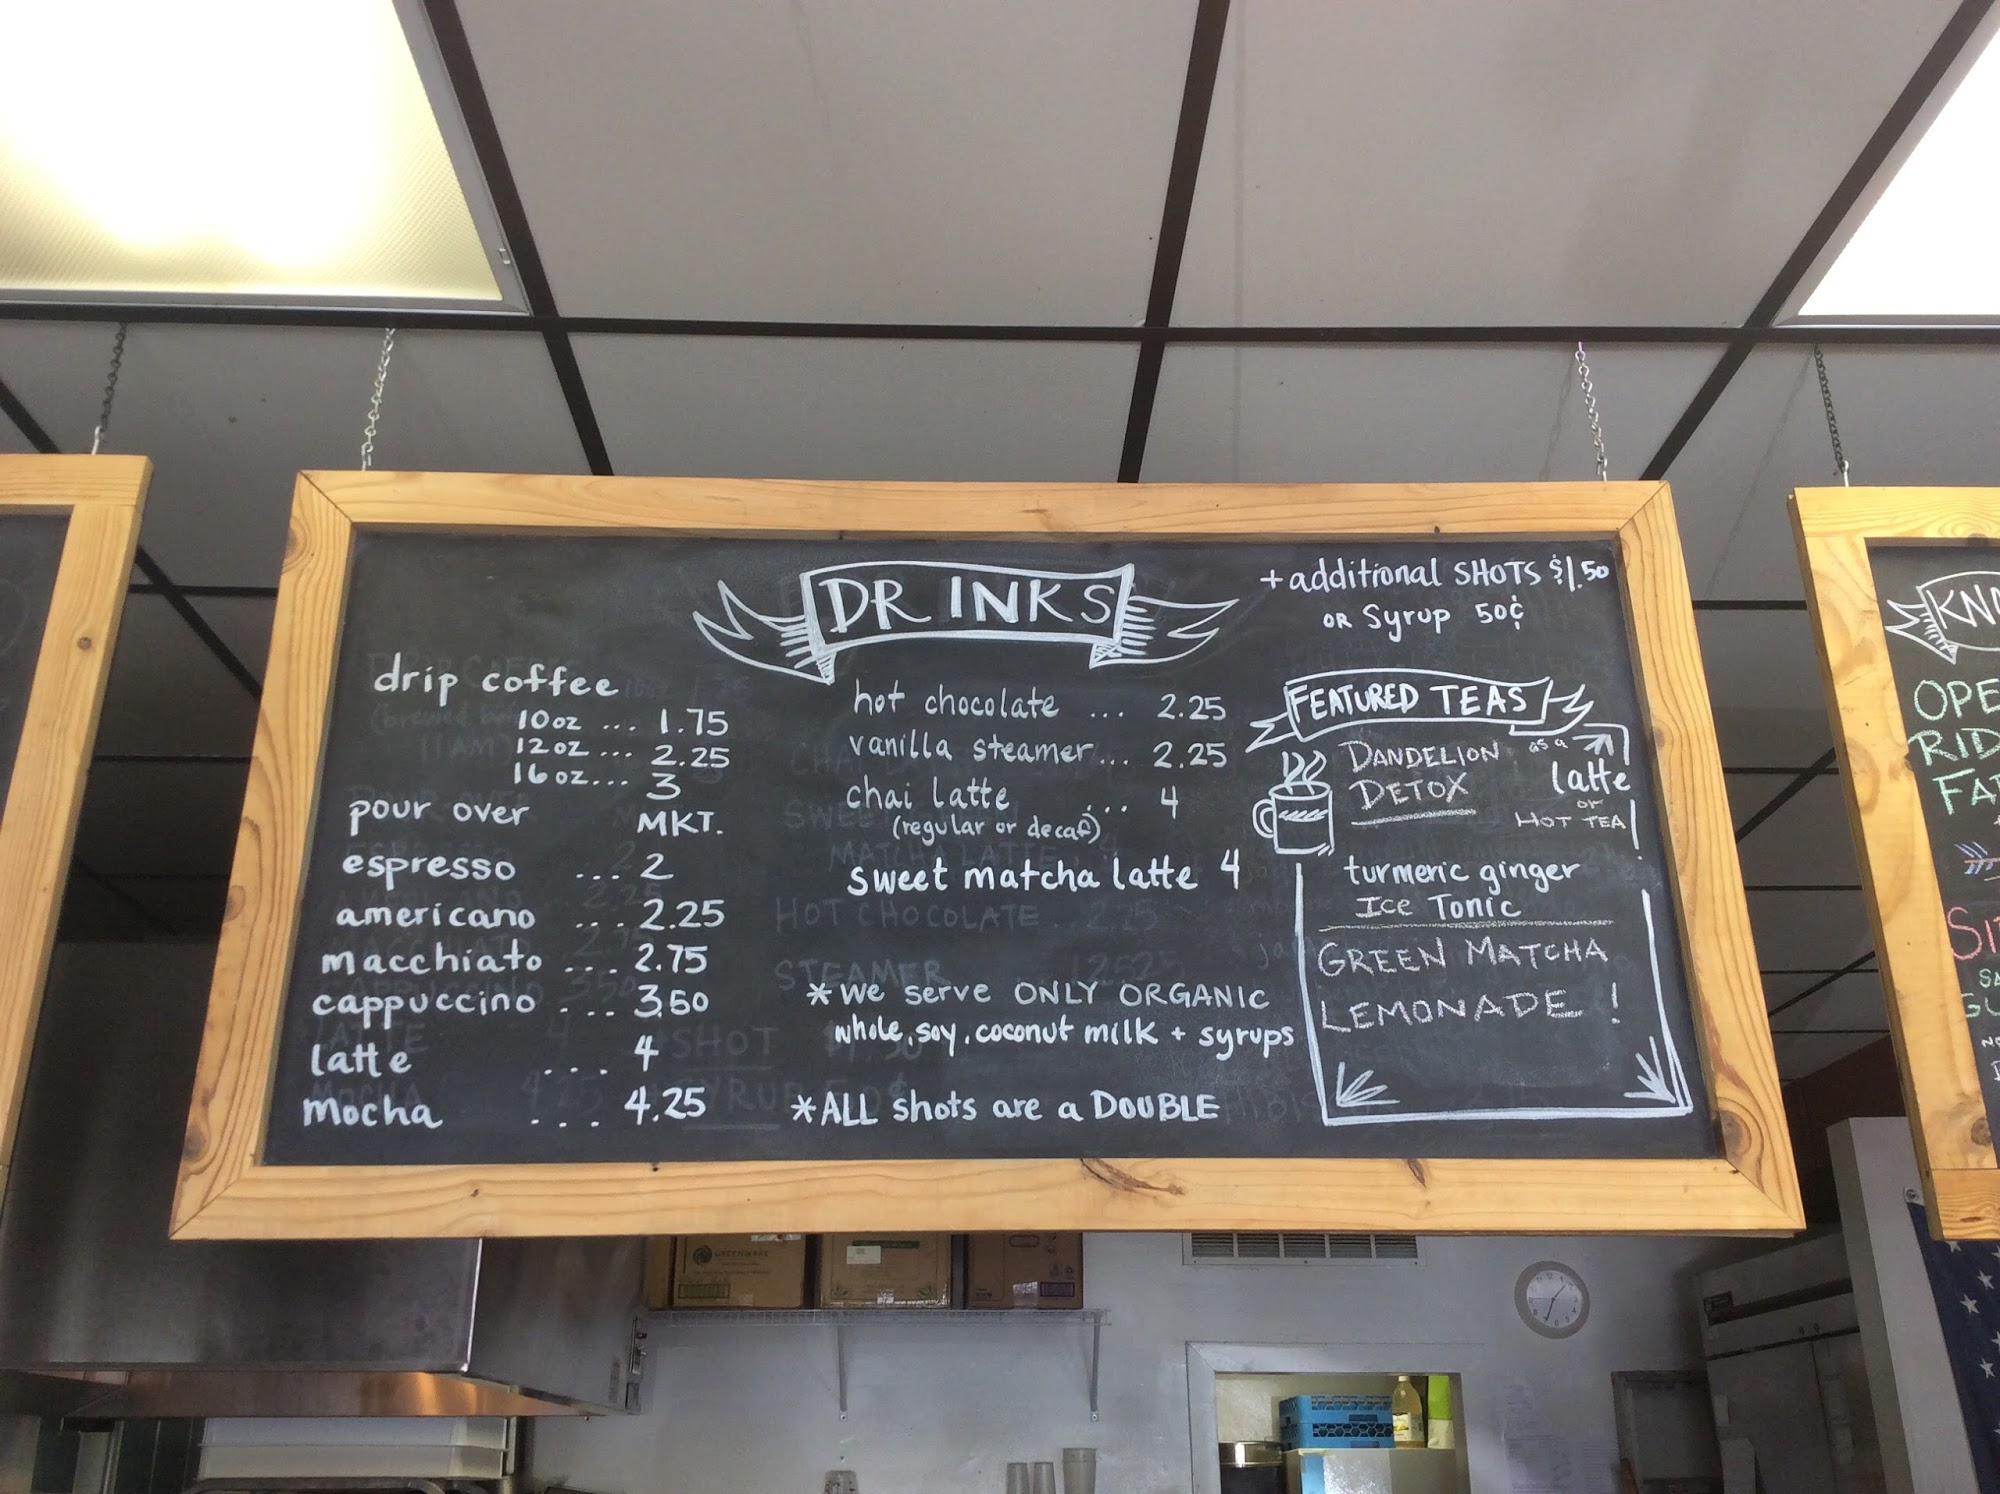 DRINKS
+ additional SHOTS $1.50
OR Syrup 50¢
drip coffee
10oz ... 1.75
12oz ... 2.25
16oz... 3
pour over MKT.
espresso ... 2
americano ... 2.25
macchiato ... 2.75
cappuccino ... 3.50
latte .... 4
mocha ... 4.25
hot chocolate ... 2.25
vanilla steamer... 2.25
chai latte ... 4
(regular or decaf)
sweet matcha latte 4
*we serve ONLY ORGANIC
whole, soy, coconut milk + syrups
*ALL shots are a DOUBLE
FEATURED TEAS
DANDELION as a
DETOX latte
or
HOT TEA!
turmeric ginger
ICE TONIC
GREEN MATCHA
LEMONADE !
OPE
RID
FA
GREENWARE